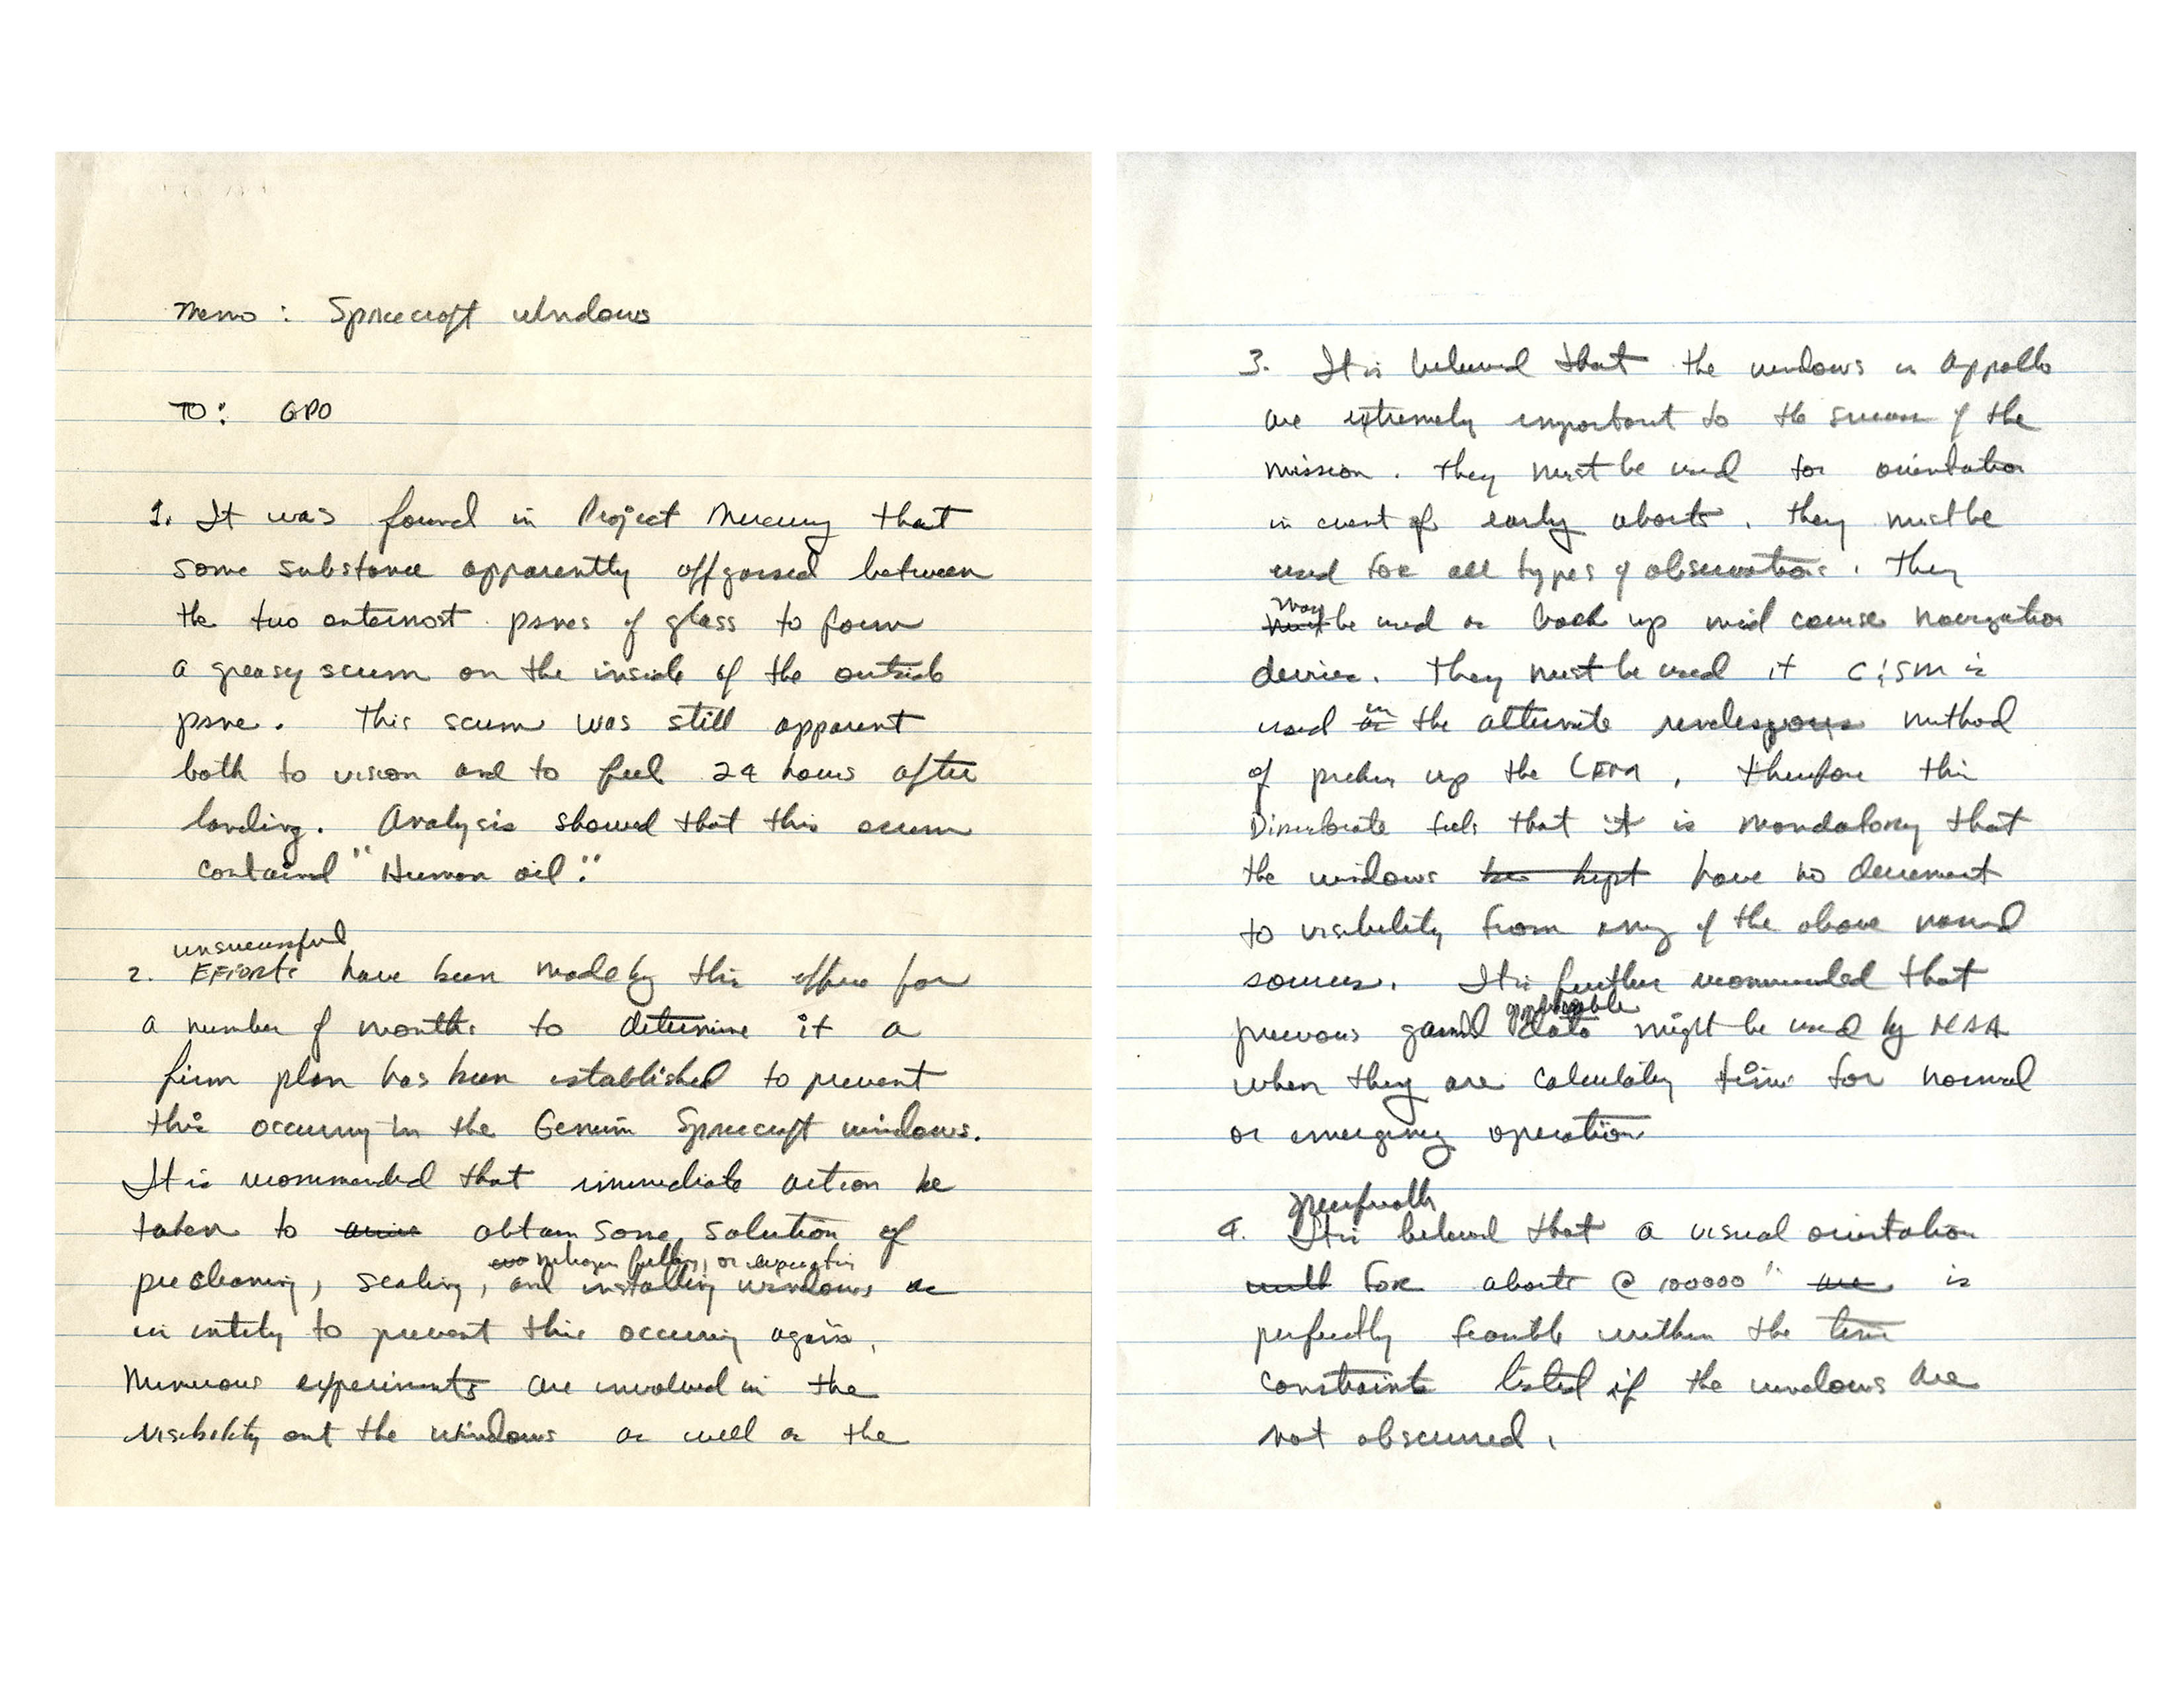 Memo: Spacecraft Windows
TO: GPO
1. It was found in Project Mercury that
some substance apparently offgassed between
the two outermost panes of glass to form
a greasy scum on the inside of the outside
pane. This scum was still apparent
both to vision and to feel 24 hours after
landing. Analysis showed that this scum
contained "Human oil."
unsuccessful
2. Efforts have been made by this office for
a number of months to determine if a
firm plan has been established to prevent
this occuring in the Gemini Spacecraft windows.
It is recommended that immediate action be
taken to obtain some solution of
nitrogen filling, or evacuation
precleaning, sealing, and installing windows
in entity to prevent this occuring again.
Numerous experiments are involved in the
visibility out the windows as well as the
3. It is believed that the windows in Appollo
are extremely important to the success of the
mission. They must be used for orientation
in event of early aborts. They must be
used for all types of observations. They
may
must be used as back up mid course navigation
devices. They must be used if C & SM is
in
used as the alternate rendezvous method
of picking up the LEM, therefore this
Directorate feels that it is mandatory that
the windows be kept have no decrement
to visibility from any of the above named
sources. It is further recommended that
applicable
previous gained data might be used by NAA
when they are calculating times for normal
or emergency operation
Specifically
4. It is believed that a visual orientation
for aborts @ 100000 is
perfectly feasible within the time
constraints listed if the windows are
not obscured.